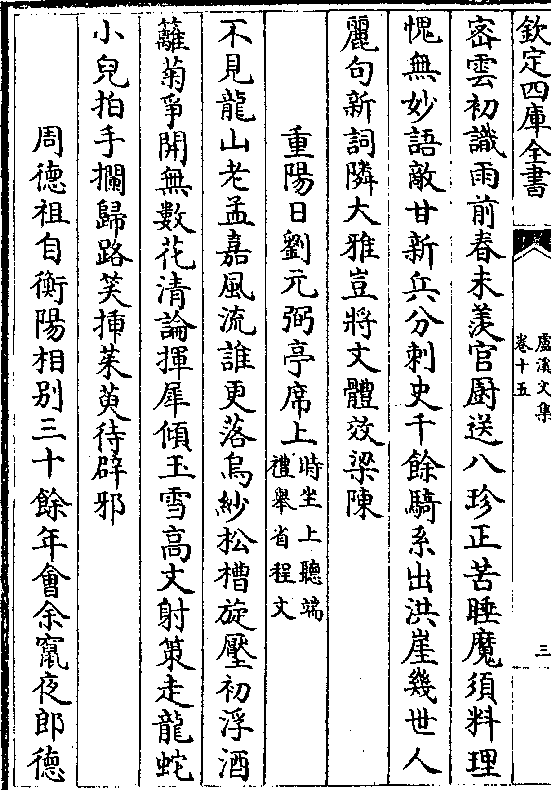 欽定四庫全書
盧溪文集
卷十五
三
密雲初識雨前春未羨官厨送八珍正苦睡魔須料理
愧無妙語敵甘新兵分刺史千餘騎系出洪崖幾世人
麗句新詞隣大雅豈將文體效梁陳
重陽日劉元弼亭席上時坐上聽端禮舉省程文
不見龍山老孟嘉風流誰更落烏紗松槽旋壓初浮酒
籬菊爭開無數花清論揮犀傾玉雪高文射策走龍蛇
小兒拍手攔歸路笑揷茱萸待辟邪
周德祖自衡陽相别三十餘年會余竄夜郎德